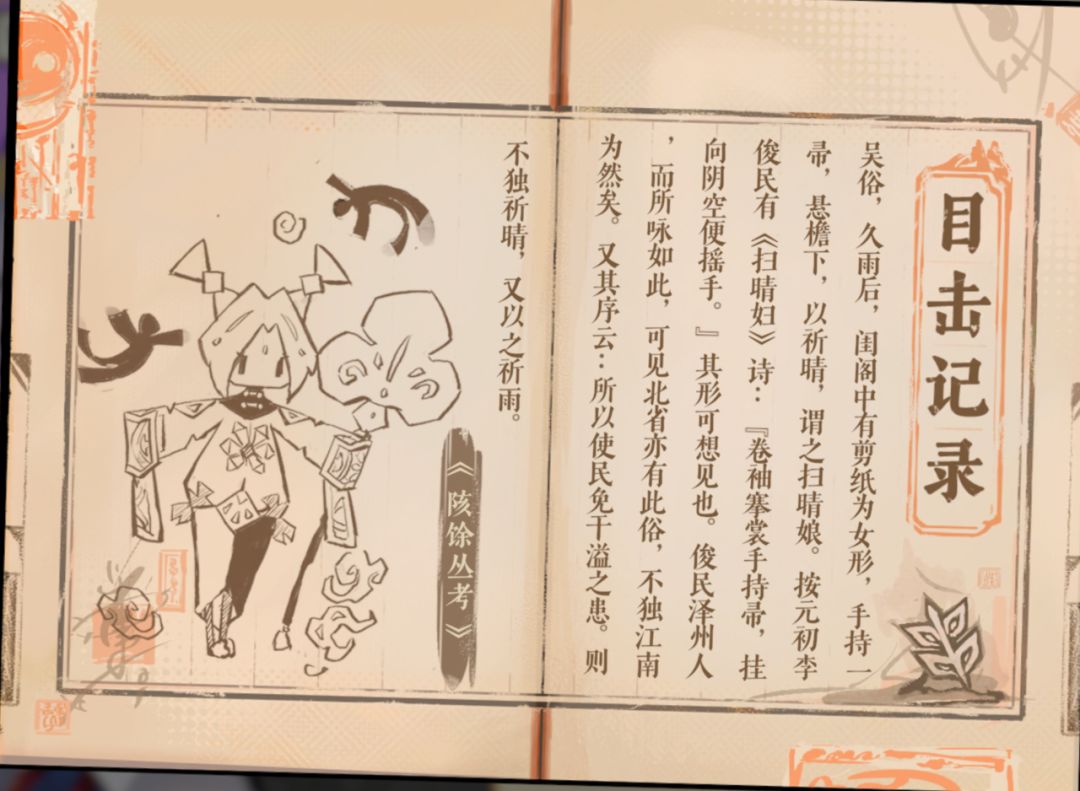 目击记录
吴俗，久雨后，闺阁中有剪纸为女形，手持一
帚，悬檐下，以祈晴，谓之扫晴娘。按元初李
俊民有《扫晴妇》诗：『卷袖搴裳手持帚，挂
向阴空便摇手。』其形可想见也。俊民泽州人
，而所咏如此，可见北省亦有此俗，不独江南
为然矣。又其序云：所以使民免干溢之患。则
不独祈晴，又以之祈雨。
《陔馀丛考》